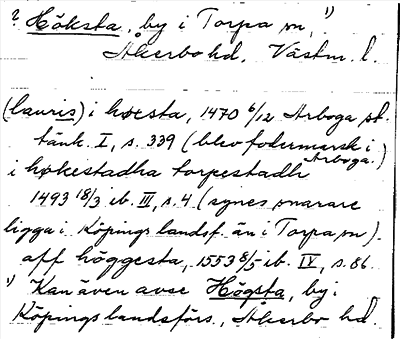 ? Höksta, by i Torpa sn, 1)
Åkerbo hd, Västm. l.
(lauris) i høcsta, 1470 6/12 Arboga st.
tänk. I, s. 339 (blev fodermarsk i Arboga.)
i høkestadha torpestadh
1493 18/3 ib. III, s. 4 (synes snarare
ligga i Köpings landsf. än i Torpa sn).
aff höggesta, 1553 8/5 ib. IV, s. 86.
1) Kan även avse Högsta, by i
Köpings landsförs., Åkerbo hd.